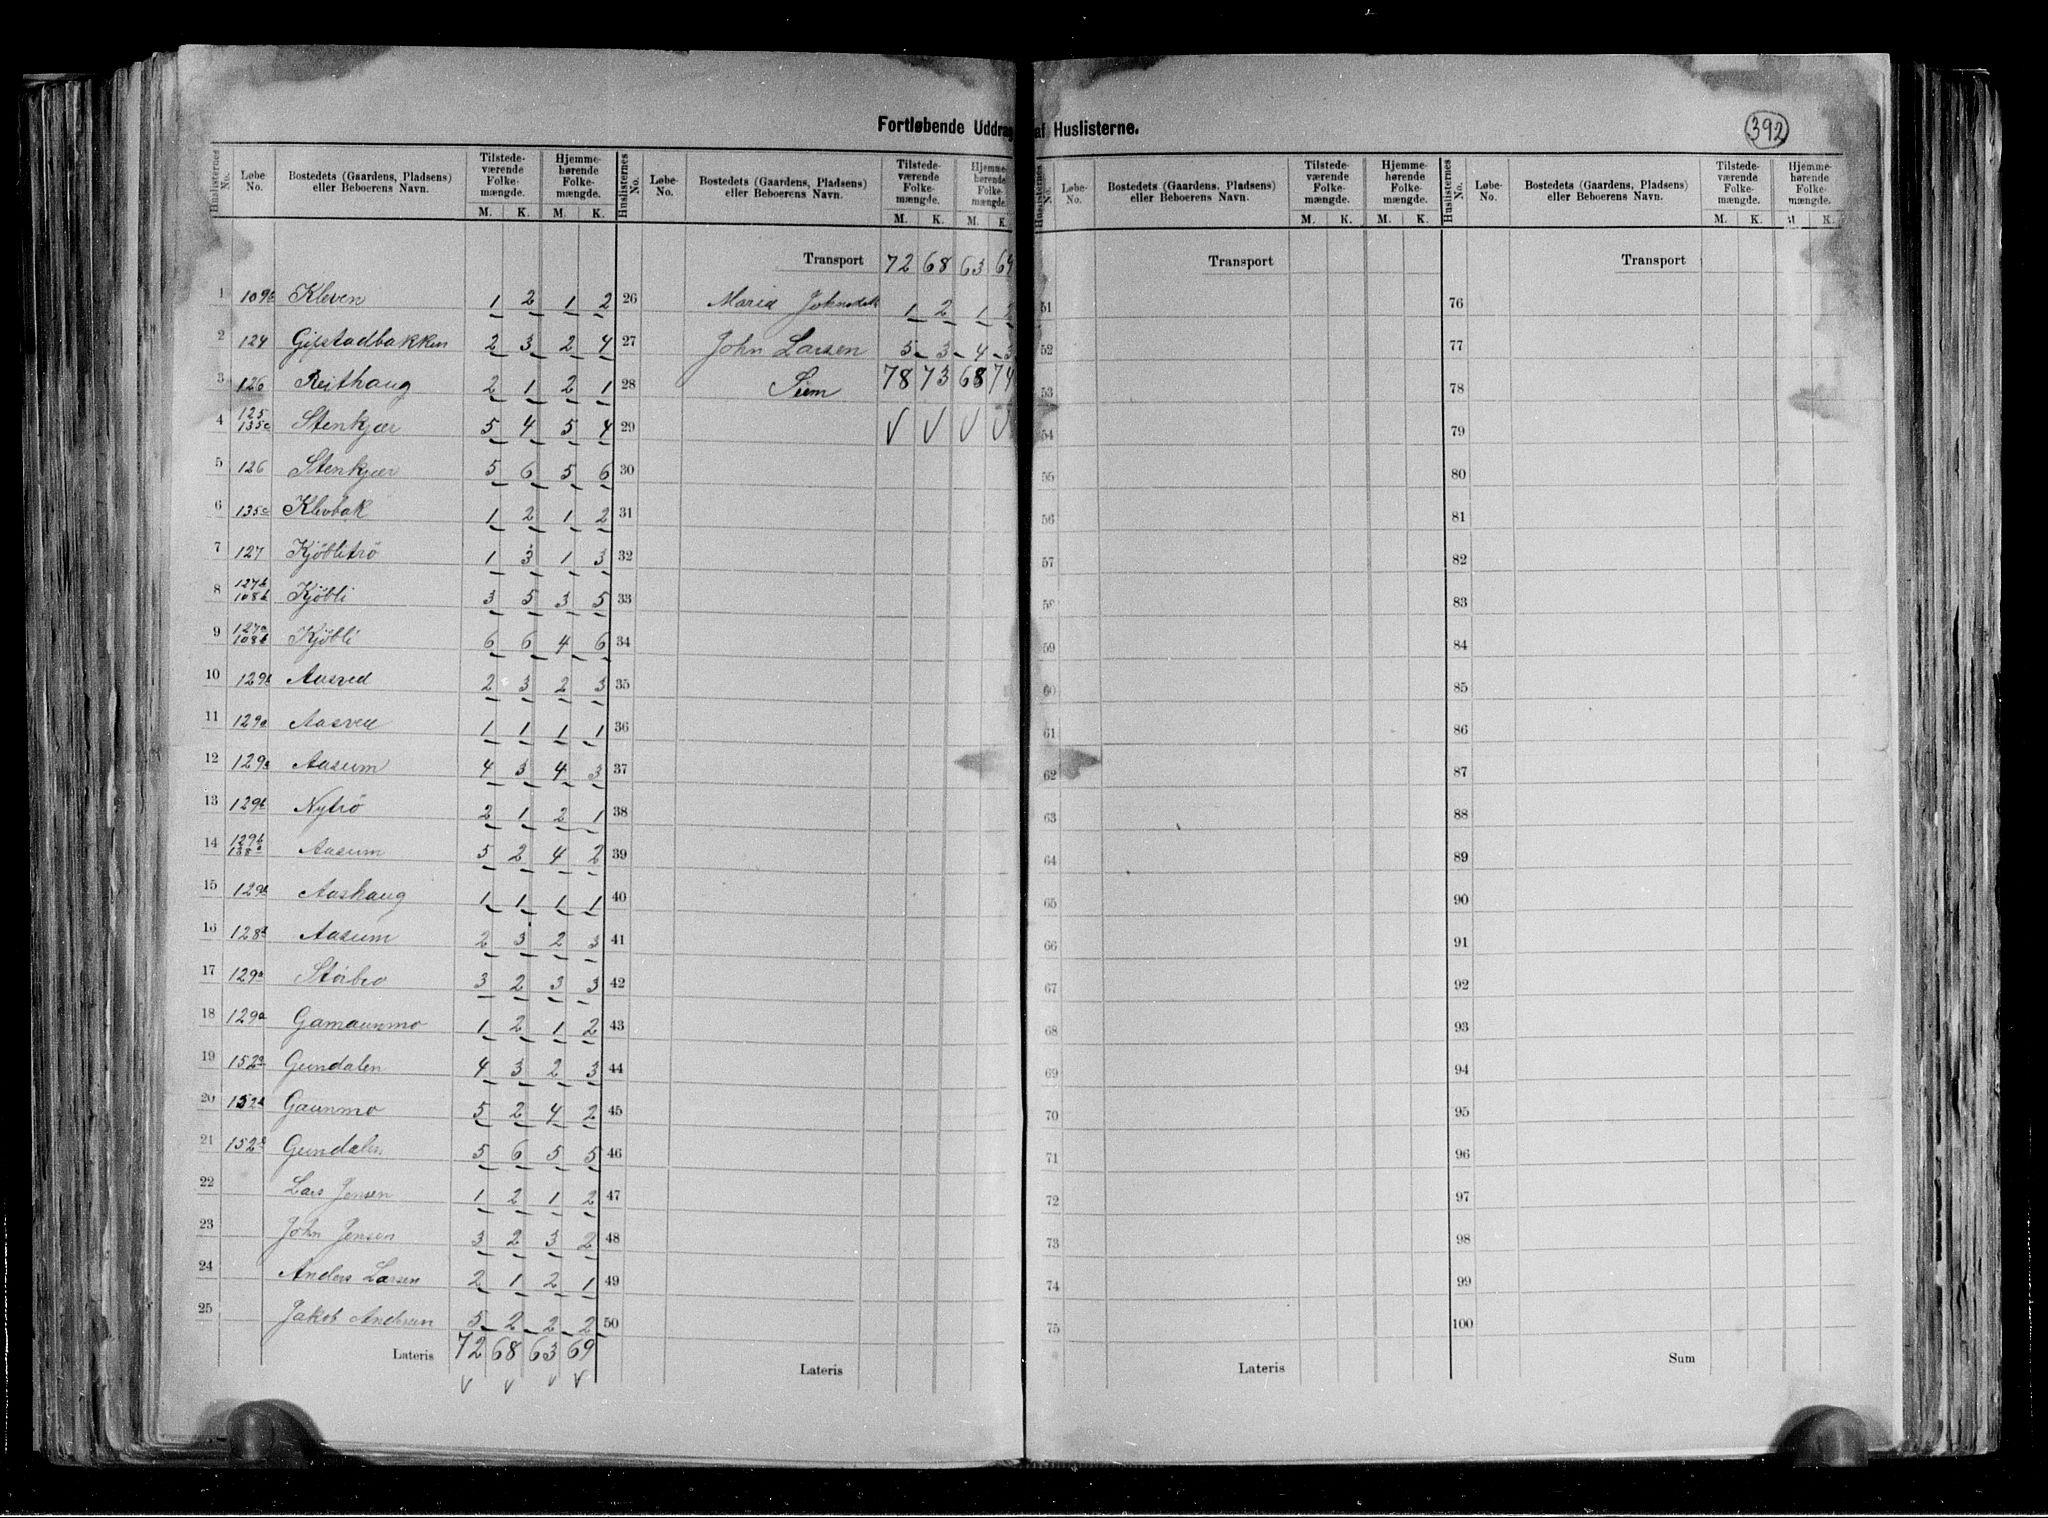 Fortløbende Uddrag af Huslisterne.
392
Huslisternes No. Løbe-No. Bostedets (Gaardens, Pladsens) eller Beboerens Navn. Tilstedeværende Folkemængde. M. K. Hjemmehørende Folkemængde. M. K.
1 109b Kleven 1 2 1 2
2 124 Gifstadbakken 2 3 2 4
3 126 Reithaug 2 1 2 1
4 125 135c Stenkjær 5 4 5 4
5 126 Stenkjær 5 6 5 6
6 135c Klevbak 1 2 1 2
7 127 Kjöblitrö 1 3 1 3
8 127b 108b Kjöbli 3 5 3 5
9 127a 108b Kjöbli 6 6 4 6
10 129b Aasved 2 3 2 3
11 129a Aasved 1 1 1 1
12 129a Aasum 4 3 4 3
13 129b Nytrö 2 1 2 1
14 129b 138a Aasum 5 2 4 2
15 129b Aashaug 1 1 1 1
16 128b Aasum 2 3 2 3
17 129a Störbro 3 2 3 3
18 129a Gamaunmo 1 2 1 2
19 152a Gundalen 4 3 2 3
20 152a Gaunmo 5 2 4 2
21 152a Gundalen 5 6 5 5
22 Lars Jensen 1 2 1 2
23 John Jensen 3 2 3 2
24 Anders Larsen 2 1 2 1
25 Jakob Andersen 5 2 2 2
Lateris 72 68 63 69
Huslisternes No. Løbe-No. Bostedets (Gaardens, Pladsens) eller Beboerens Navn. Tilstedeværende Folkemængde. M. K. Hjemmehørende Folkemængde. M. K.
Transport 72 68 63 69
26 Maria Johnsdat 1 2 1 2
27 John Larsen 5 3 4 3
28 Sum 78 73 68 74
29
30
31
32
33
34
35
36
37
38
39
40
41
42
43
44
45
46
47
48
49
50
Lateris
Huslisternes No. Løbe-No. Bostedets (Gaardens, Pladsens) eller Beboerens Navn. Tilstedeværende Folkemængde. M. K. Hjemmehørende Folkemængde. M. K.
Transport
51
52
53
54
55
56
57
58
59
60
61
62
63
64
65
66
67
68
69
70
71
72
73
74
75
Lateris
Huslisternes No. Løbe-No. Bostedets (Gaardens, Pladsens) eller Beboerens Navn. Tilstedeværende Folkemængde. M. K. Hjemmehørende Folkemængde. M K.
Transport
76
77
78
79
80
81
82
83
84
85
86
87
88
89
90
91
92
93
94
95
96
97
98
99
100
Sum